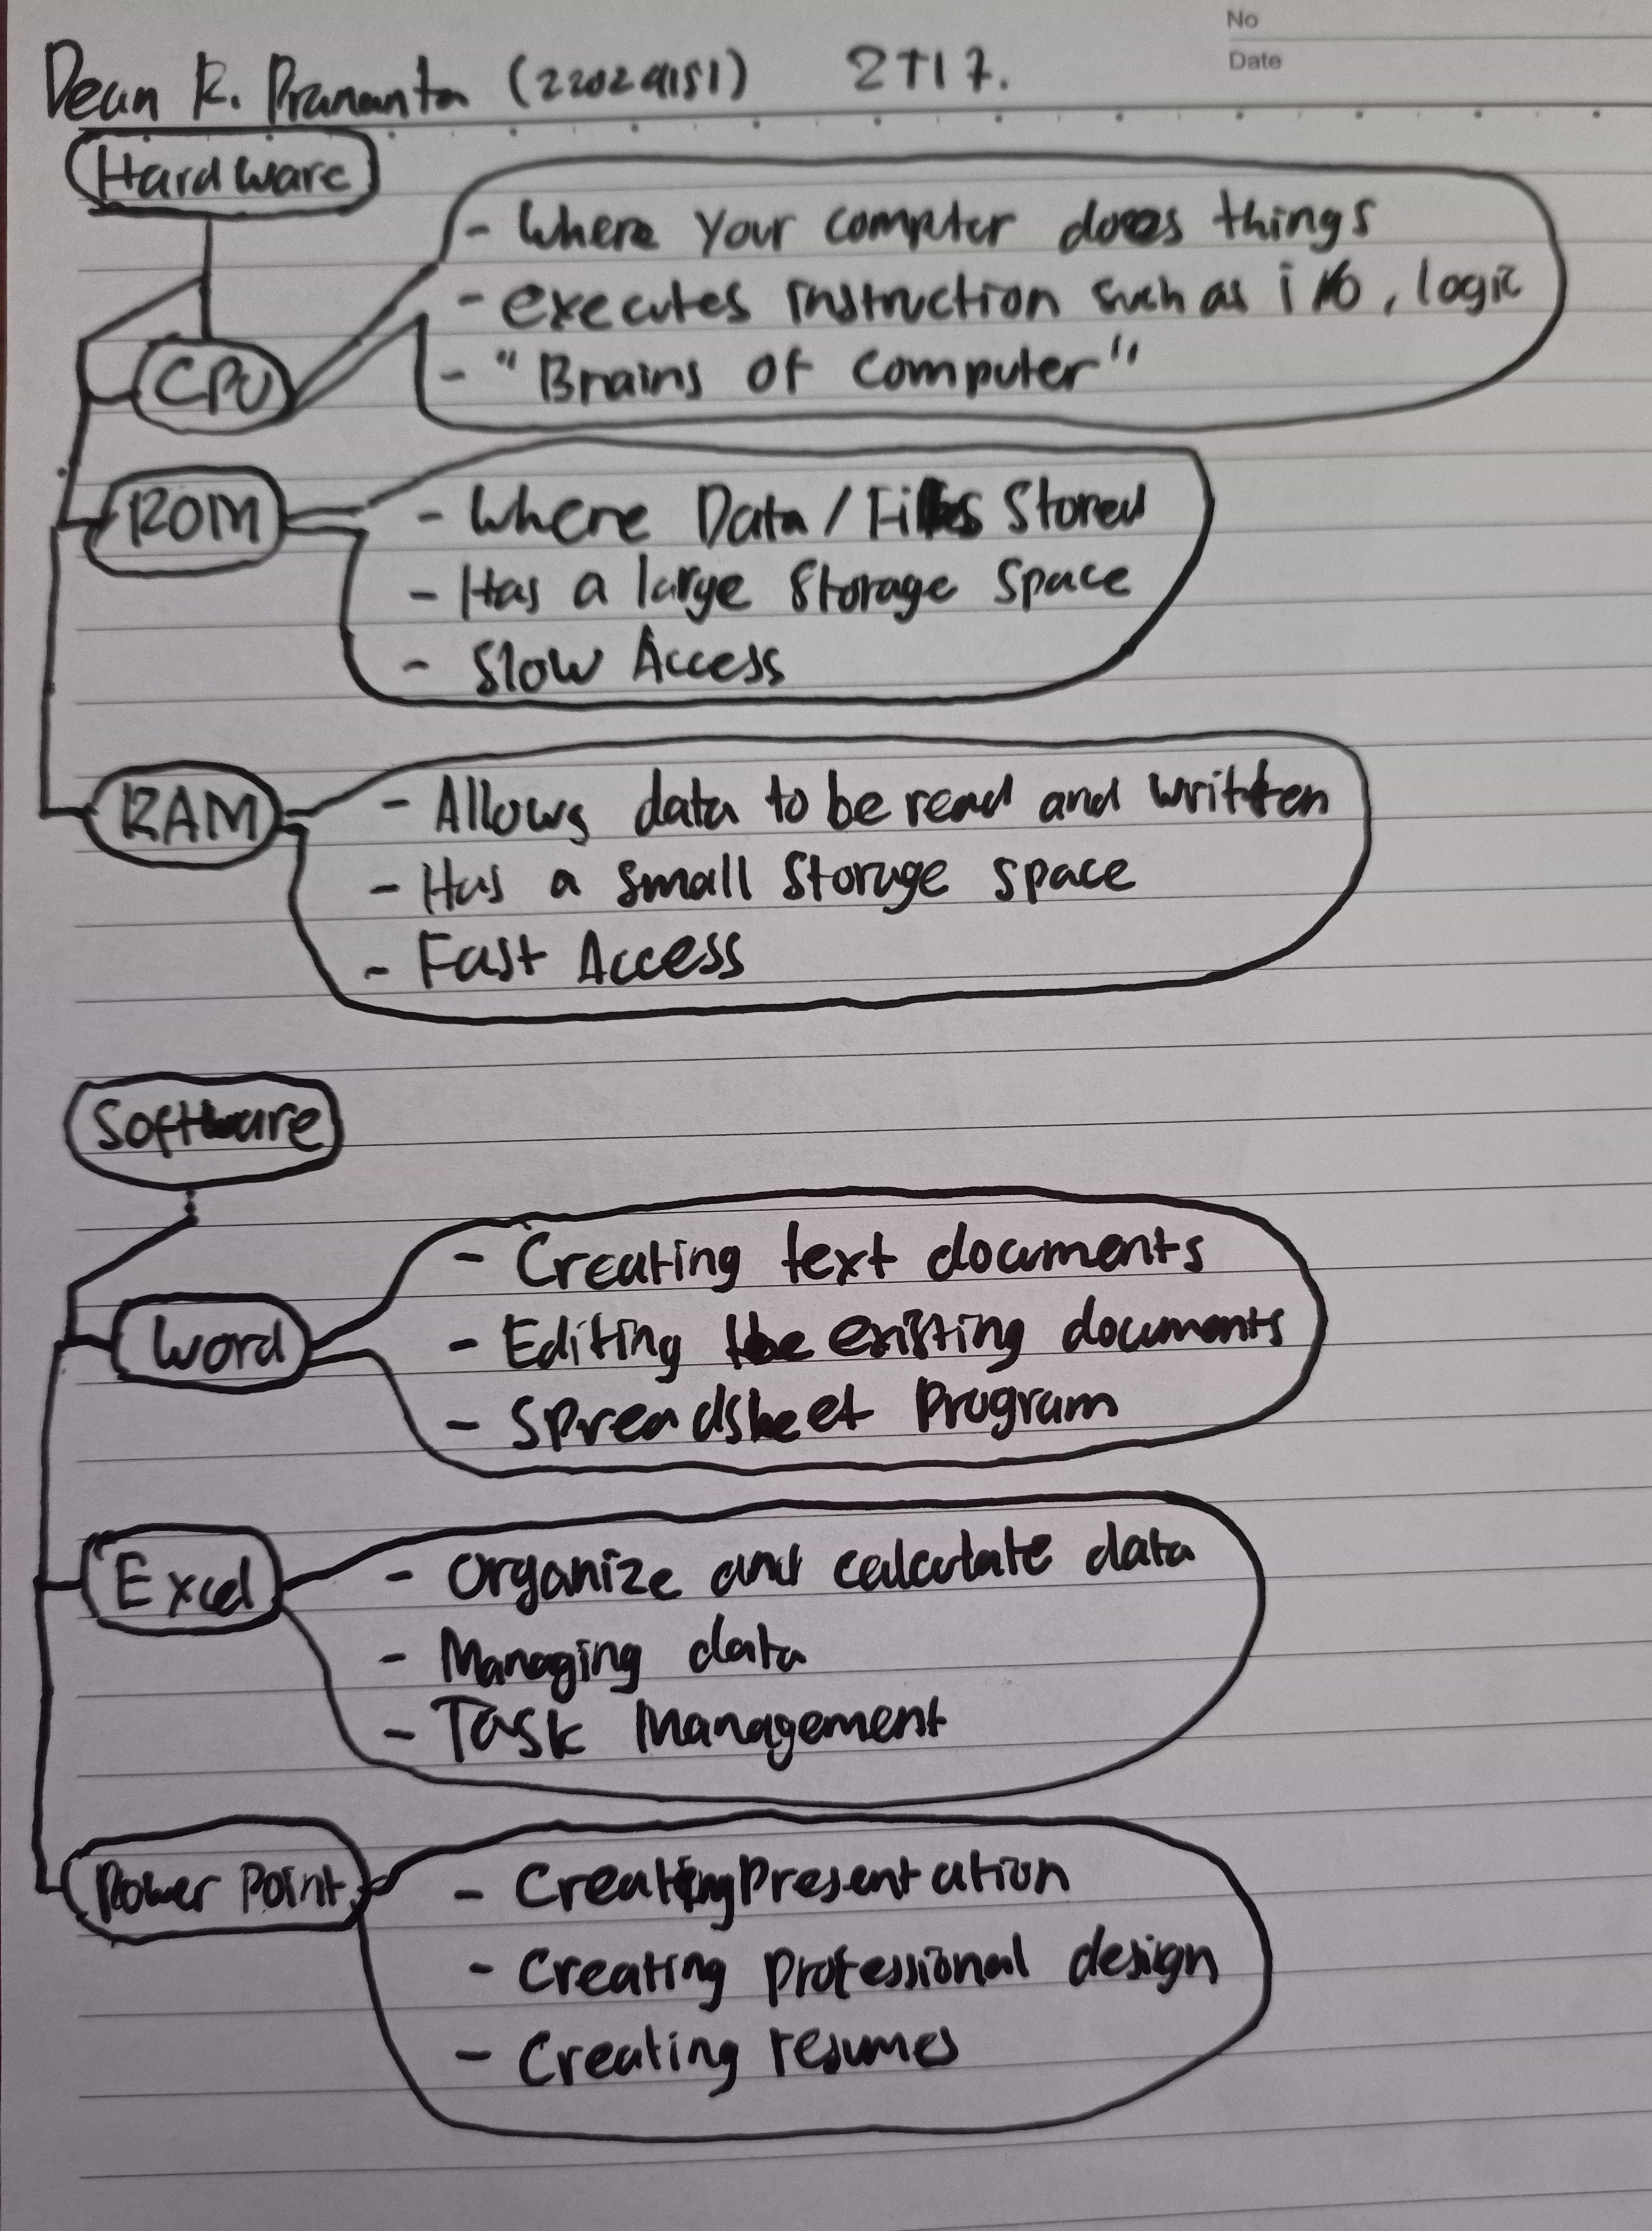 No
Date
Dean R. Prananta (22024151) 2TI7.
Hardware
- Where your computer does things
- executes instruction such as i/o, logic
CPU
- "Brains of computer"
ROM
- Where Data / Files Stored
- Has a large Storage Space
- Slow Access
RAM
- Allows data to be read and written
- Has a small storage space
- Fast Access
Software
- Creating text documents
Word
- Editing the existing documents
- Spreadsheet Program
Excel
- Organize and calculate data
- Managing data
- Task Management
Power Point
- Creating Presentation
- Creating professional design
- Creating resumes